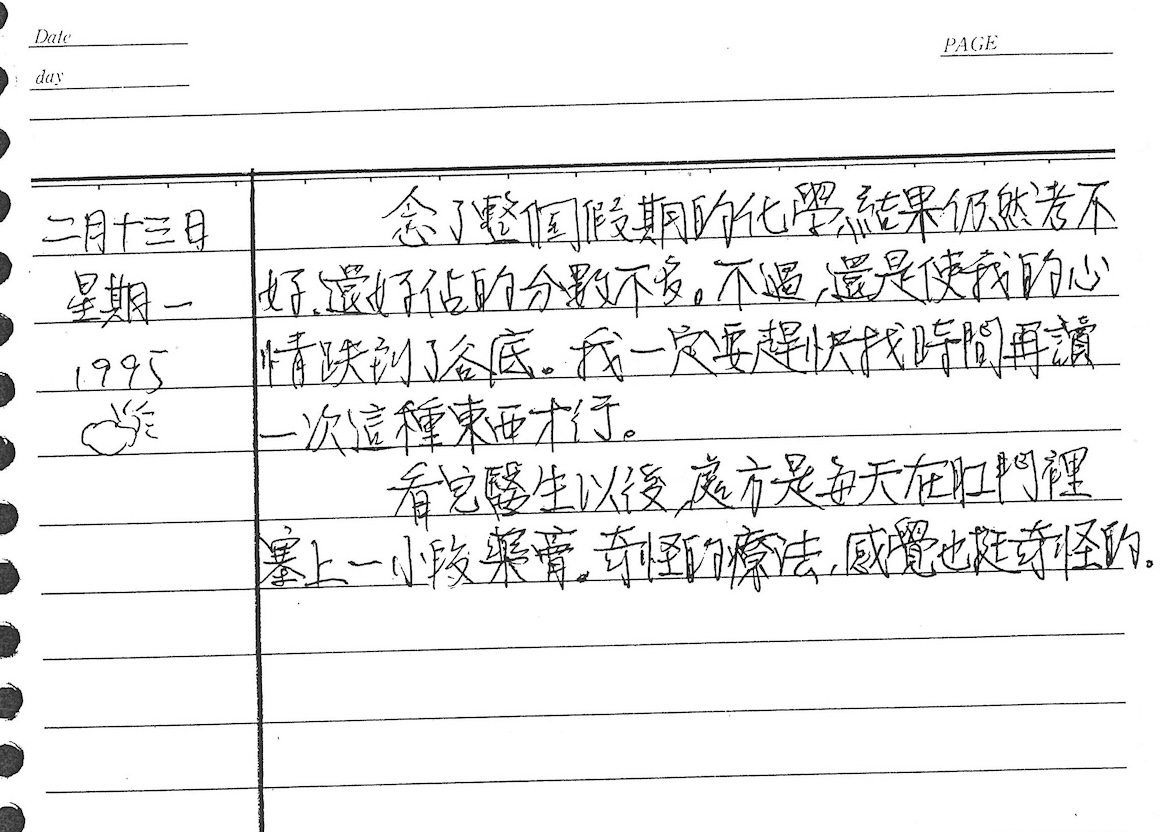 Date
PAGE
day
二月十三日
星期一
1995
念了整個假期的化學,結果仍然考不
好,還好佔的分數不多。不過,還是使我的心
情跌到了谷底。我一定要趕快找時間再讀
一次這種東西才行。
看完醫生以後,處方是每天在肛門裡
塞上一小段藥膏。奇怪的療法,感覺也挺奇怪的。